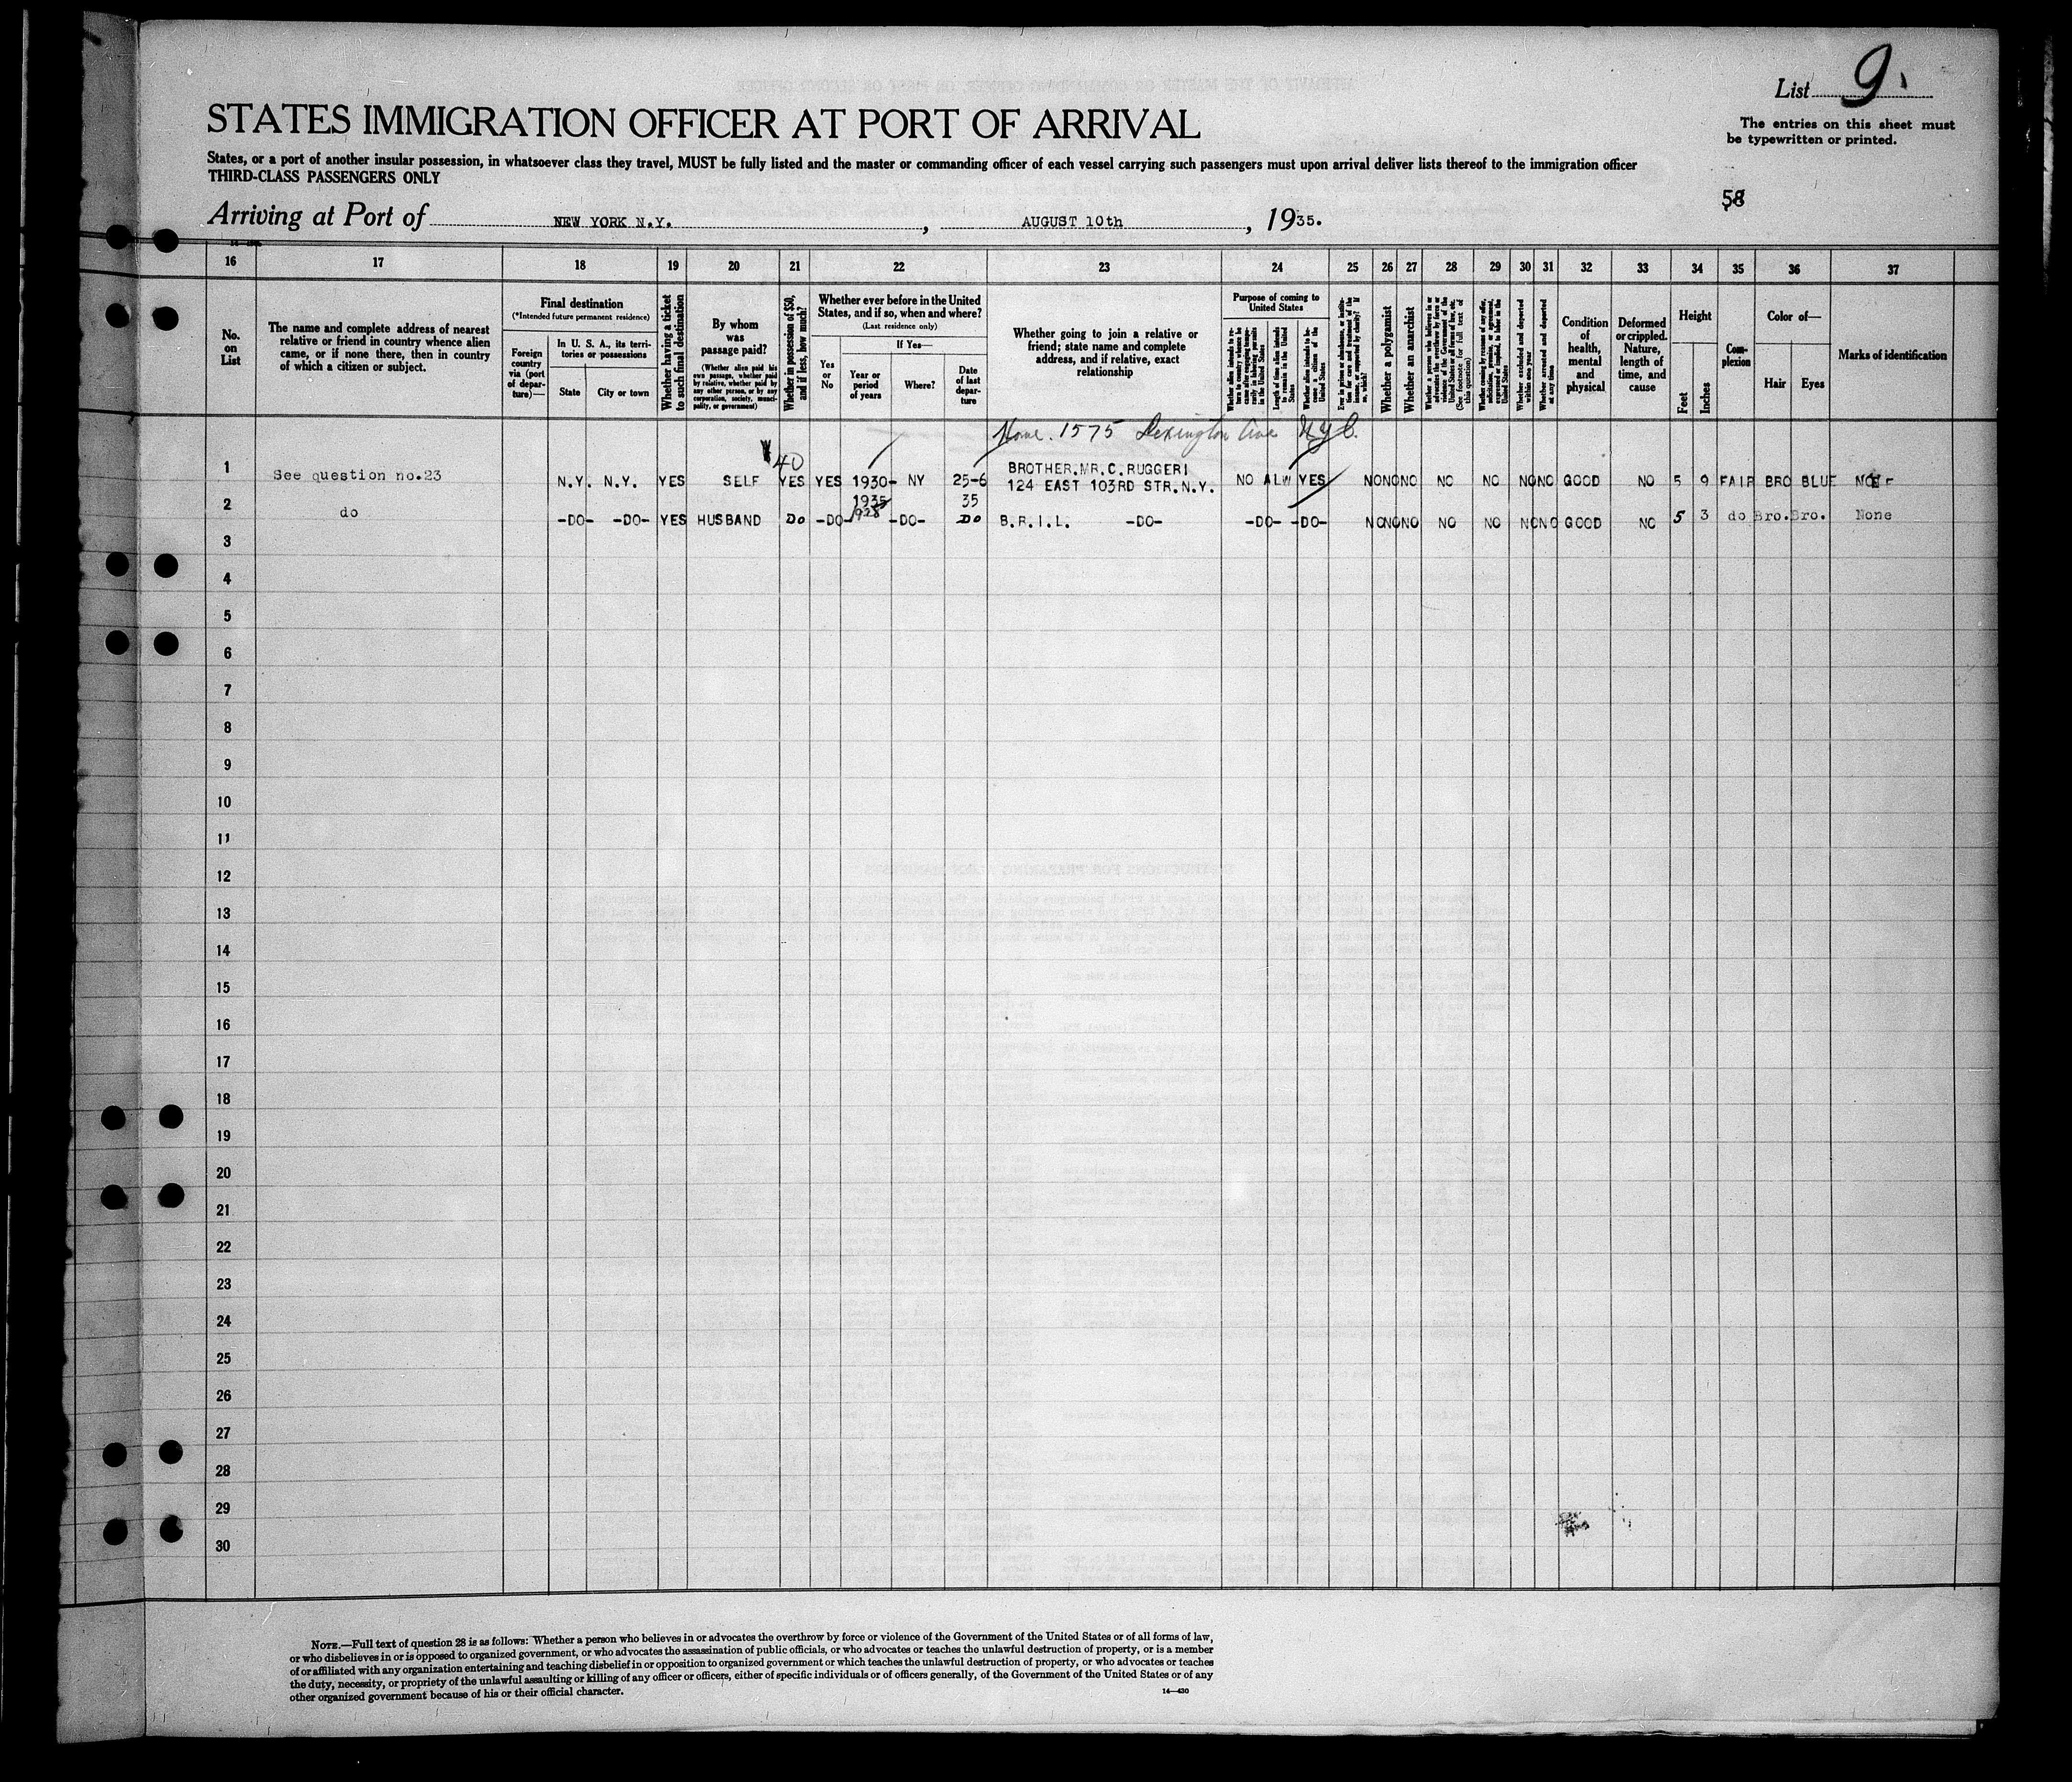 List 9.
The entries on this sheet must
be typewritten or printed.
STATES IMMIGRATION OFFICER AT PORT OF ARRIVAL
States, or a port of another insular possession, in whatsoever class they travel, MUST be fully listed and the master or commanding officer of each vessel carrying such passengers must upon arrival deliver lists thereof to the immigration officer
THIRD-CLASS PASSENGERS ONLY
58
Arriving at Port of NEW YORK N.Y., AUGUST 10th, 1935.
16 17 18 19 20 21 22 23 24 25 26 27 28 29 30 31 32 33 34 35 36 37
No. on List
The name and complete address of nearest
relative or friend in country whence alien
came, or if none there, then in country
of which a citizen or subject.
Final destination
(*Intended future permanent residence)
Foreign country via (port of departure)—
In U. S. A., its territories or possessions
State
City or town
Whether having a ticket to such final destination
By whom was passage paid?
(Whether alien paid his own passage, whether paid by relative, whether paid by any other person, or by any corporation, society, municipality, or government)
Whether in possession of $50, and if less, how much?
Whether ever before in the United
States, and if so, when and where?
(Last residence only)
Yes or No
If Yes—
Year or period of years
Where?
Date of last departure
Whether going to join a relative or
friend; state name and complete
address, and if relative, exact
relationship
Purpose of coming to United States
Whether alien intends to return to country whence he came after engaging temporarily in laboring pursuits in the United States
Length of time alien intends to remain in the United States
Whether alien intends to become a citizen of the United States
Whether a polygamist
Whether an anarchist
Whether excluded and deported within one year
Whether arrested and deported at any time
Condition of health, mental and physical
Deformed or crippled. Nature, length of time, and cause
Height
Feet
Inches
Complexion
Color of—
Hair
Eyes
Marks of identification
Home. 1575 Lexington Ave NYC.
40
1 See question no.23 N.Y. N.Y. YES SELF YES YES 1930-1935 NY 25-6 35 BROTHER.MR.C.RUGGERI
124 EAST 103RD STR.N.Y. NO ALW YES NO NO NO NO NO NO NO GOOD NO 5 9 FAIR BRO BLUE NONE
2 do -DO- -DO- YES HUSBAND DO -DO- -DO- DO B.R.I.L. -DO- -DO- -DO- NO NO NO NO NO NO NO GOOD NO 5 3 do Bro. Bro. None
3
4
5
6
7
8
9
10
11
12
13
14
15
16
17
18
19
20
21
22
23
24
25
26
27
28
29
30
NOTE.—Full text of question 28 is as follows: Whether a person who believes in or advocates the overthrow by force or violence of the Government of the United States or of all forms of law,
or who disbelieves in or is opposed to organized government, or who advocates the assassination of public officials, or who advocates or teaches the unlawful destruction of property, or is a member
of or affiliated with any organization entertaining and teaching disbelief in or opposition to organized government or which teaches the unlawful destruction of property, or who advocates or teaches
the duty, necessity, or propriety of the unlawful assaulting or killing of any officer or officers, either of specific individuals or of officers generally, of the Government of the United States or of any
other organized government because of his or their official character.
14—430